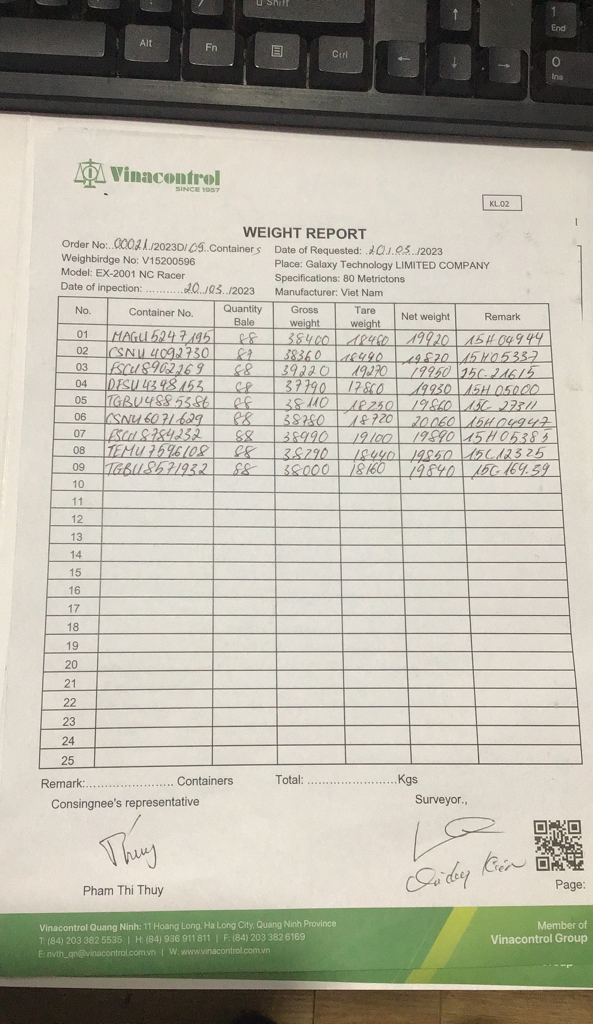 Shift
Alt
Fn
Ctrl
1
End
0
Ins
Vinacontrol
SINCE 1957
KL.02
WEIGHT REPORT
Order No: 00021/2023D/09 Containers Date of Requested: 20/03/2023
Weighbirdge No: V15200596 Place: Galaxy Technology LIMITED COMPANY
Model: EX-2001 NC Racer Specifications: 80 Metrictons
Date of inpection: ........... 20/03/2023 Manufacturer: Viet Nam
No. Container No. Quantity Bale Gross weight Tare weight Net weight Remark
01 MAGU5247195 88 38400 18480 19920 15H04944
02 CSNU4092730 89 38360 18490 19870 15H05337
03 FSCU8902269 88 39220 19270 19950 15C-21615
04 DFSU4348153 88 37790 17860 19930 15H05000
05 TGBU4885386 88 38110 18250 19860 15C 27311
06 CSNU6071629 88 38780 18720 20060 15H04947
07 FSCU8784232 88 38990 19100 19890 15H05385
08 TEMU7596108 88 38290 18440 19850 15C12325
09 TGBU8571932 88 38000 18160 19840 15C-164.39
10
11
12
13
14
15
16
17
18
19
20
21
22
23
24
25
Remark:...................... Containers Total: .......................Kgs
Consingnee's representative Surveyor.,
Thuy
Pham Thi Thuy
Page:
Vinacontrol Quang Ninh: 11 Hoang Long, Ha Long City, Quang Ninh Province
T: (84) 203 382 5535 | H: (84) 936 911 811 | F: (84) 203 382 6169
E: nvth_qn@vinacontrol.com.vn | W: www.vinacontrol.com.vn
Member of
Vinacontrol Group